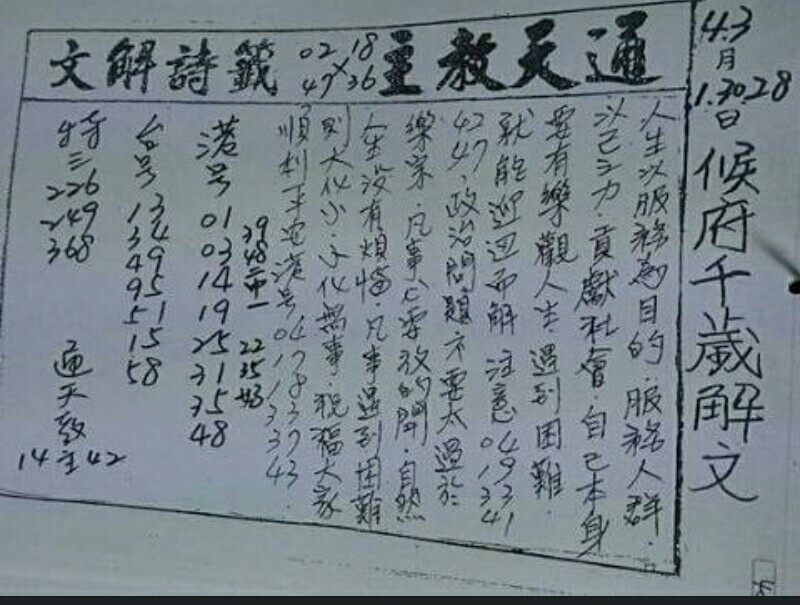 4.3月1.30.28日
候府千歲解文
通天教主
18 36 × 02 49
籤詩解文
人生以服務為目的．服務人群．
以己之力．貢獻社會．自己本身
要有樂觀人生 遇到困難．
就能迎迴而解 注意 04 19 33 41
42 47．政治問題 不要太過於
樂宗．凡事心要放的開．自然
人生沒有煩惱．凡事遇到困難
則大化小．小化無事．祝福大家
順利平安 港号 04 17 18 33 37 43．
39 48 二中一 22 35 43
港号 01 03 14 19 25 31 35 48
台号 13 34 49 95 51 15 58
特三 226 249 368
通天教主
14 42